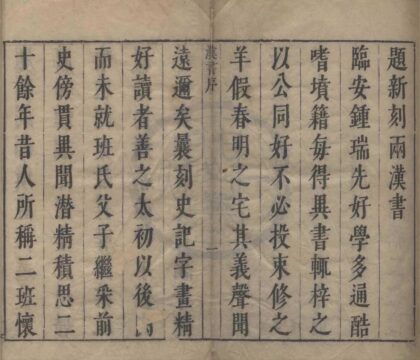 題新刻兩漢書
臨安鍾瑞先好學多通酷
嗜墳籍每得異書輒梓之
以公同好不必投束修之
羊假春明之宅其義聲聞
漢書序
一
遠邇矣曩刻史記字畫精
好讀者善之太初以後
而未就班氏父子繼采前
史傍貫異聞潜精積思二
十餘年昔人所稱二班懷